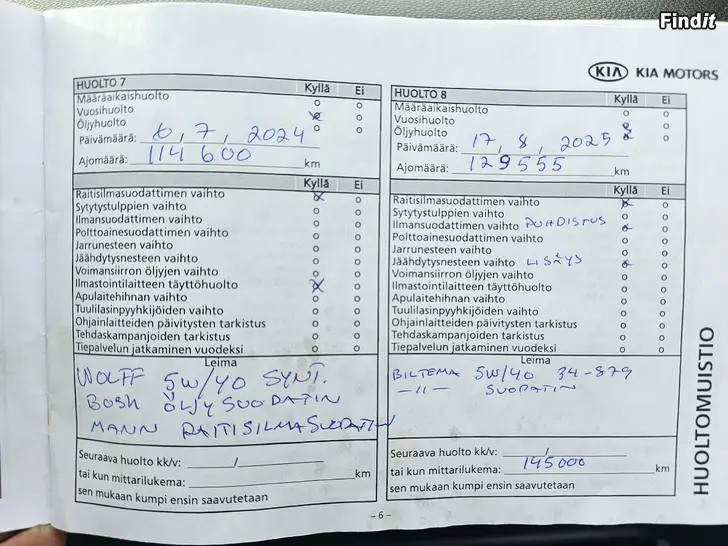 Findit
KIA KIA MOTORS
HUOLTO 7 Kyllä Ei
Määräaikaishuolto
Vuosihuolto
Öljyhuolto
Päivämäärä: 6, 7, 2024
Ajomäärä: 114 600 km
Kyllä Ei
Raitisilmasuodattimen vaihto
Sytytystulppien vaihto
Ilmansuodattimen vaihto
Polttoainesuodattimen vaihto
Jarrunesteen vaihto
Jäähdytysnesteen vaihto
Voimansiirron öljyjen vaihto
Ilmastointilaitteen täyttöhuolto
Apulaitehihnan vaihto
Tuulilasinpyyhkijöiden vaihto
Ohjainlaitteiden päivitysten tarkistus
Tehdaskampanjoiden tarkistus
Tiepalvelun jatkaminen vuodeksi
Leima
WOLFF 5W/40 SYNT.
BOSH ÖLJYSUODATIN
MANN RAITISILMASUODATIN
Seuraava huolto kk/v: /
tai kun mittarilukema: km
sen mukaan kumpi ensin saavutetaan
HUOLTO 8 Kyllä Ei
Määräaikaishuolto
Vuosihuolto
Öljyhuolto
Päivämäärä: 17, 8, 2025
Ajomäärä: 129555 km
Kyllä Ei
Raitisilmasuodattimen vaihto
Sytytystulppien vaihto
Ilmansuodattimen vaihto PUHDISTUS
Polttoainesuodattimen vaihto
Jarrunesteen vaihto
Jäähdytysnesteen vaihto LISÄYS
Voimansiirron öljyjen vaihto
Ilmastointilaitteen täyttöhuolto
Apulaitehihnan vaihto
Tuulilasinpyyhkijöiden vaihto
Ohjainlaitteiden päivitysten tarkistus
Tehdaskampanjoiden tarkistus
Tiepalvelun jatkaminen vuodeksi
Leima
BILTEMA 5W/40 34-879
-11- SUODATIN
Seuraava huolto kk/v: /
tai kun mittarilukema: 145000 km
sen mukaan kumpi ensin saavutetaan
HUOLTOMUISTIO
- 6 -